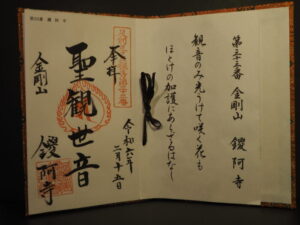 第三十三番 金剛山 鑁阿寺
観音のみ光うけて咲く花も
ほとけの加護にあらざるはなし
奉拝
令和六年
二月十五日
聖観世音
金剛山
鑁阿寺